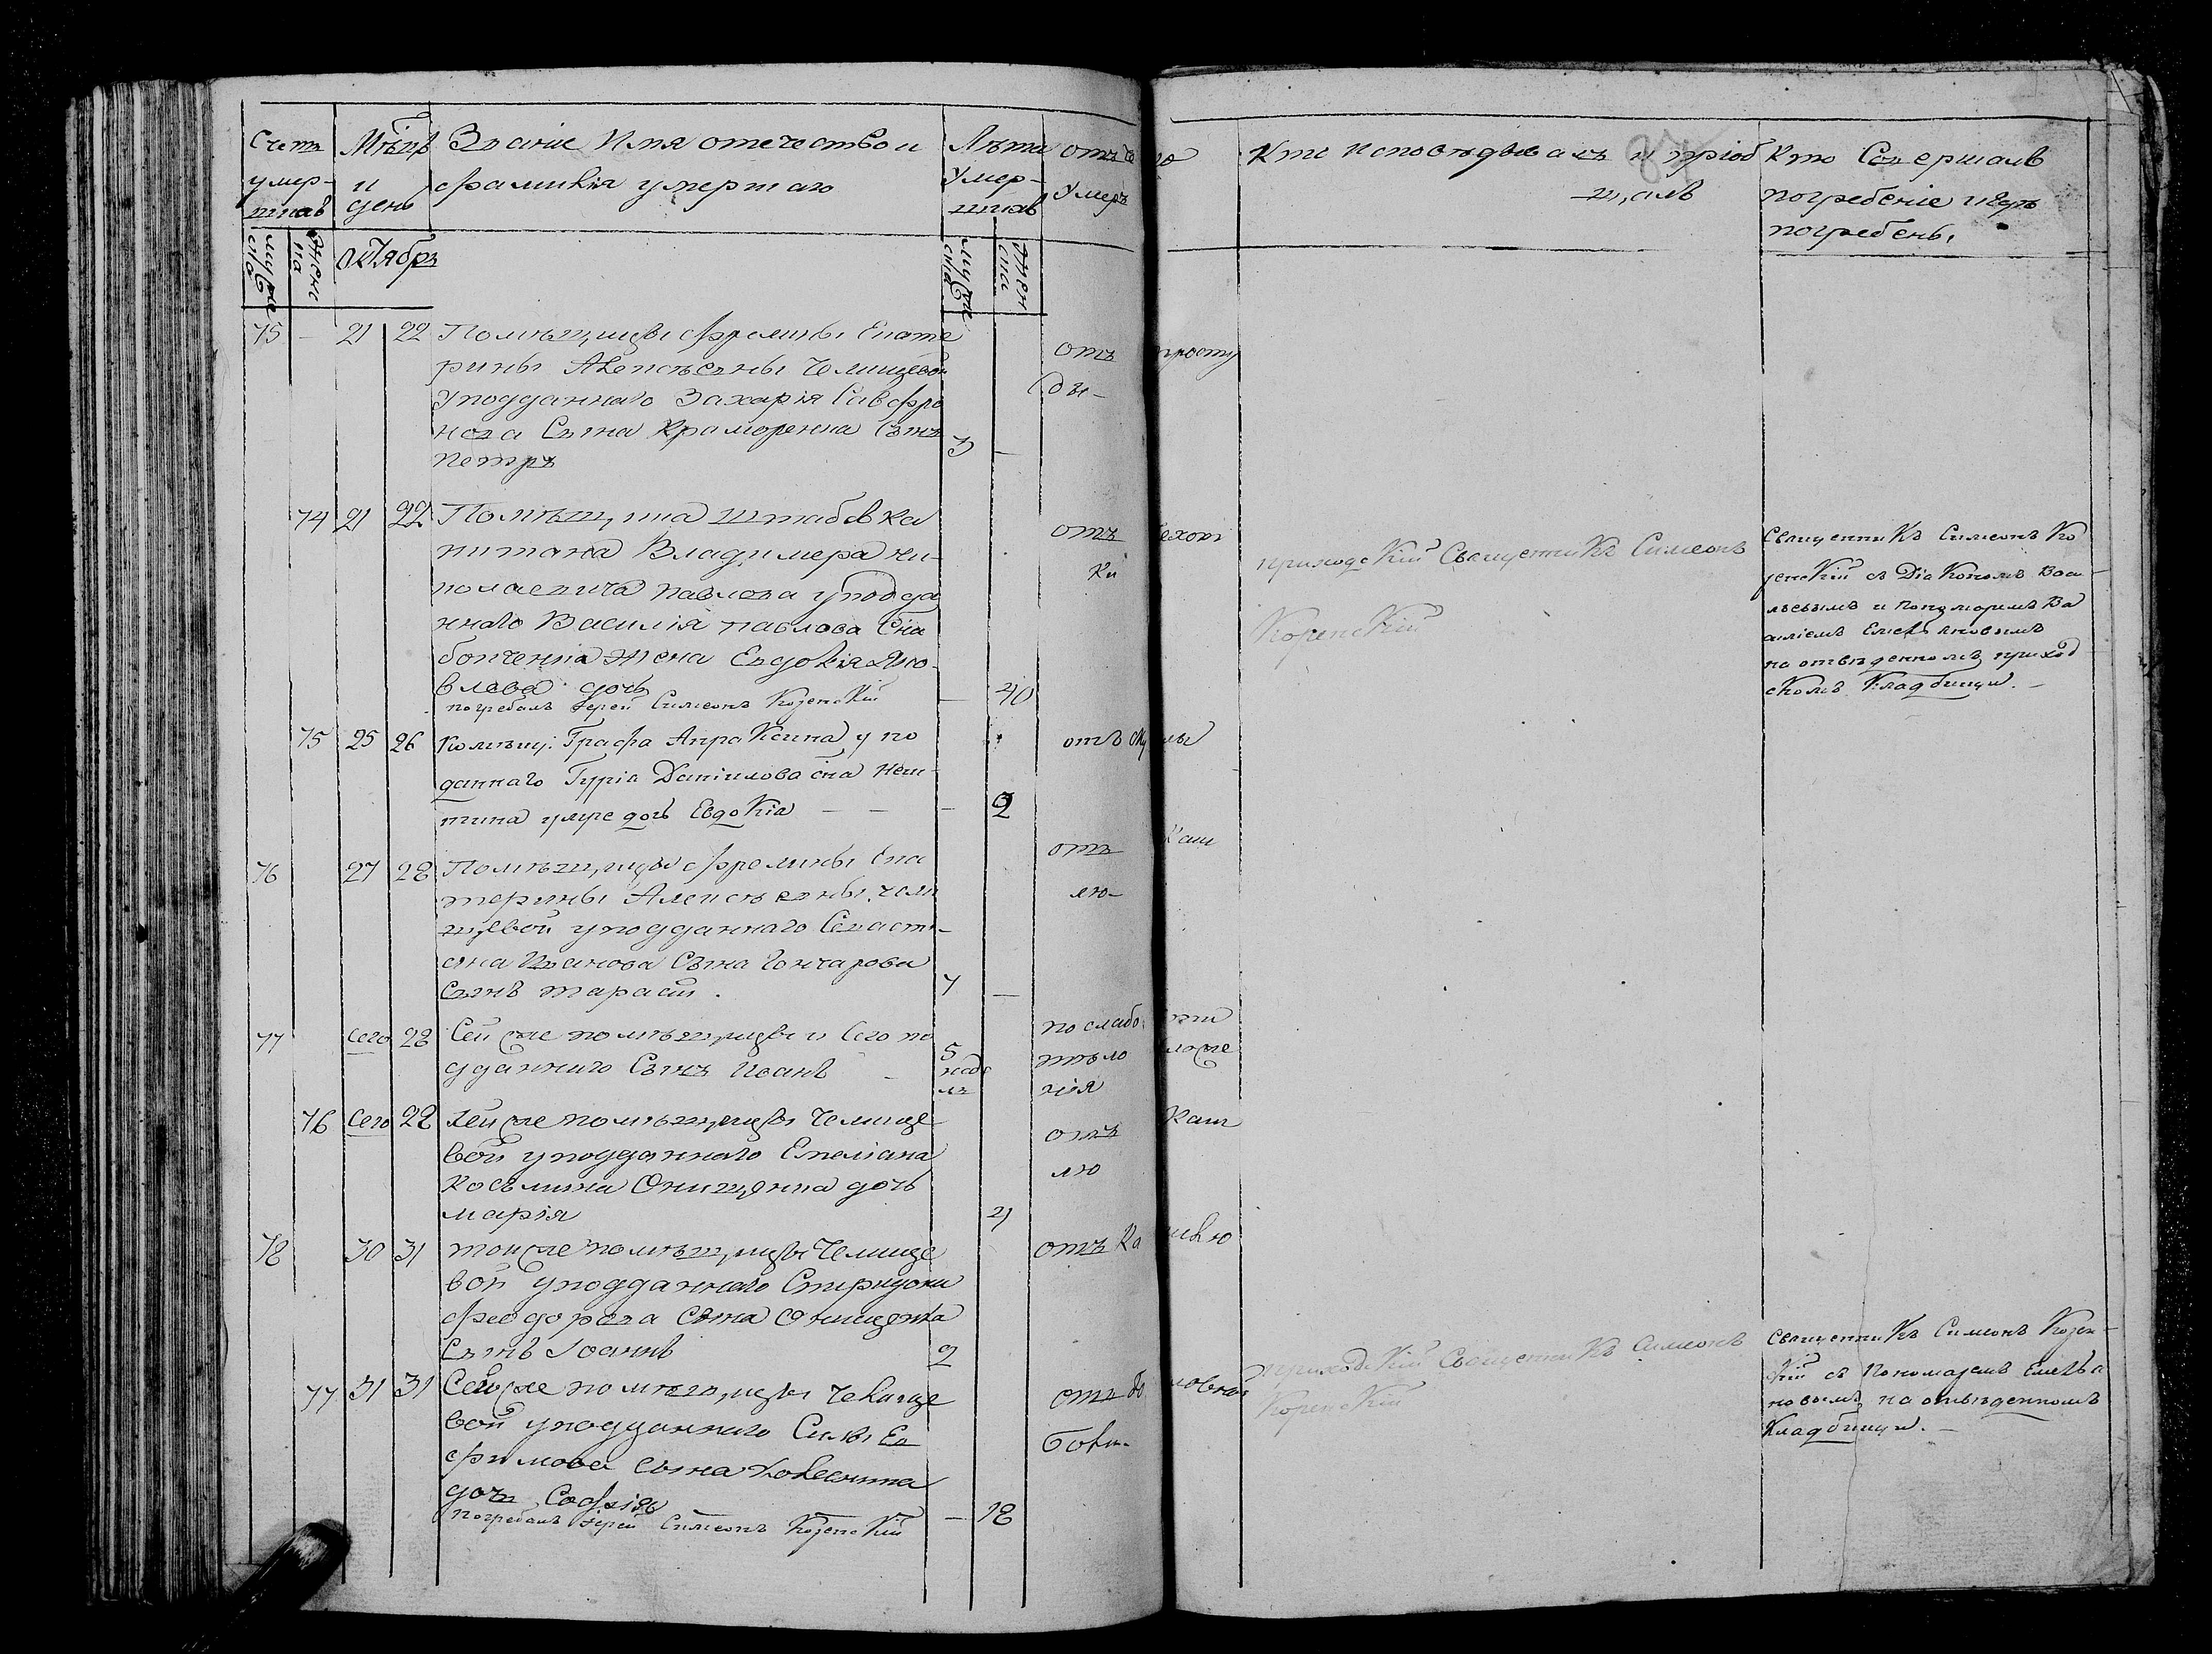 Счетъ умер-шихъ
Мѣцъ и день
Званіе Имя отечество и фамилія умершаго
Лѣта Умер-шихъ
отъ чего Умеръ
Кто исповѣдывалъ и пріобщалъ
Кто Совершалъ погребеніе и гдѣ погребены
муже ска
Женс ка
Октябрь
муже ска
Жен ска
75 — 21 22 Помѣщицы Фрелины Екате
рины Алексѣевны Челищевой
у подданнаго Захарія Савфро
нова Сына Краморенка Сынъ
Петръ
3 —
отъ просту
ды-
74 21 22 Помѣщика штабсъ ка
питана Владимера Ни-
колаевича Павлова у подда
ннаго Василія Павлова Сна
жена Евдокія Яко-
влева дочь
— 40
погребалъ Іерей Симеонъ Козенскій
отъ чехот
ки
приходскій Священникъ Симеонъ
Священникъ Симеонъ Ко
зенскій съ Діакономъ Васи
льевымъ и Пономаремъ Ва
силіемъ Емельяновымъ
на отведенномъ приход
скомъ Кладбищи. —
75 25 26 помѣщ: Графа Апраксина у по
данного Гурія Даніилова сна
умре дочь Евдокія — —
— 2
отъ
76 27 28 Помѣщицы Фрелины Ека
терины Алексѣевны Чели
щевой у подданнаго Севасті-
яна Иванова Сына Гончарова
Сынъ Тарасій.
7 —
отъ каш
лю-
77 Сего 28 Сей же помѣщицы и Сего по
дданнаго Сынъ Иванъ —
5 недѣль
по слабости
тѣло
сложе
нія
76 Сего 28 Сей же помѣщицы Челище
вой у подданнаго Емеліана
Косьмина Онищенка дочь
марія
отъ каш
лю
78 30 31 той же помѣщицы Челище
вой у подданнаго Спиридона
Феодорова Сына Онищенка
Сынъ Іоаннъ
2
отъ кашлю
77 31 31 Сей же помѣщицы Челище
вой у подданнаго Силы Ев
фимова Сына Колесника
дочь Софія
погребалъ Іерей Симеонъ Козенскій
— 18
отъ головной
боли-
приходскій Священникъ Симеонъ
Священникъ Симеонъ Козен-
скій съ Пономаремъ Емелья
новымъ на отведенномъ
Кладбищи. —